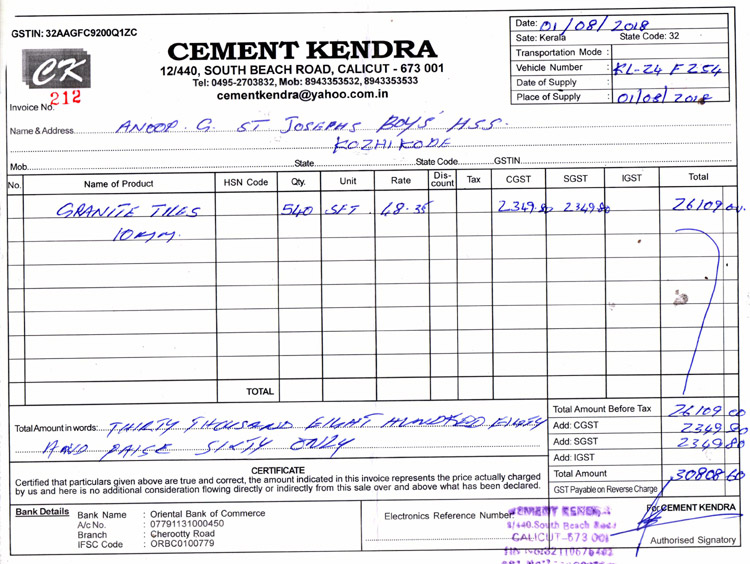 GSTIN: 32AAGFC9200Q1ZC
CK
CEMENT KENDRA
12/440, SOUTH BEACH ROAD, CALICUT - 673 001
Tel: 0495-2703832, Mob: 8943353532, 8943353533
cementkendra@yahoo.com.in
Date: 01/08/2018
Sate: Kerala State Code: 32
Transportation Mode :
Vehicle Number : KL-24 F 254
Date of Supply :
Place of Supply : 01/08/2018
Invoice No. 212
Name & Address ANOOP. G. ST JOSEPHS BOYS' HSS.
KOZHIKODE
Mob. State State Code GSTIN
No. Name of Product HSN Code Qty. Unit Rate Dis-count Tax CGST SGST IGST Total
GRANITE TILES 540 SFT 48.35 2349.80 2349.80 26109.00
10mm.
TOTAL
Total Amount in words: THIRTY THOUSAND EIGHT HUNDRED EIGHTY
AND PAISE SIXTY ONLY
Total Amount Before Tax 26109 00
Add: CGST 2349 80
Add: SGST 2349 80
Add: IGST
Total Amount 30808.60
GST Payable on Reverse Charge
CERTIFICATE
Certified that particulars given above are true and correct, the amount indicated in this invoice represents the price actually charged
by us and here is no additional consideration flowing directly or indirectly from this sale over and above what has been declared.
Bank Details
Bank Name : Oriental Bank of Commerce
A/c No. : 07791131000450
Branch : Cherootty Road
IFSC Code : ORBC0100779
Electronics Reference Number
CEMENT KENDRA
8/440.South Beach Road
CALICUT-673 001
For CEMENT KENDRA
Authorised Signatory